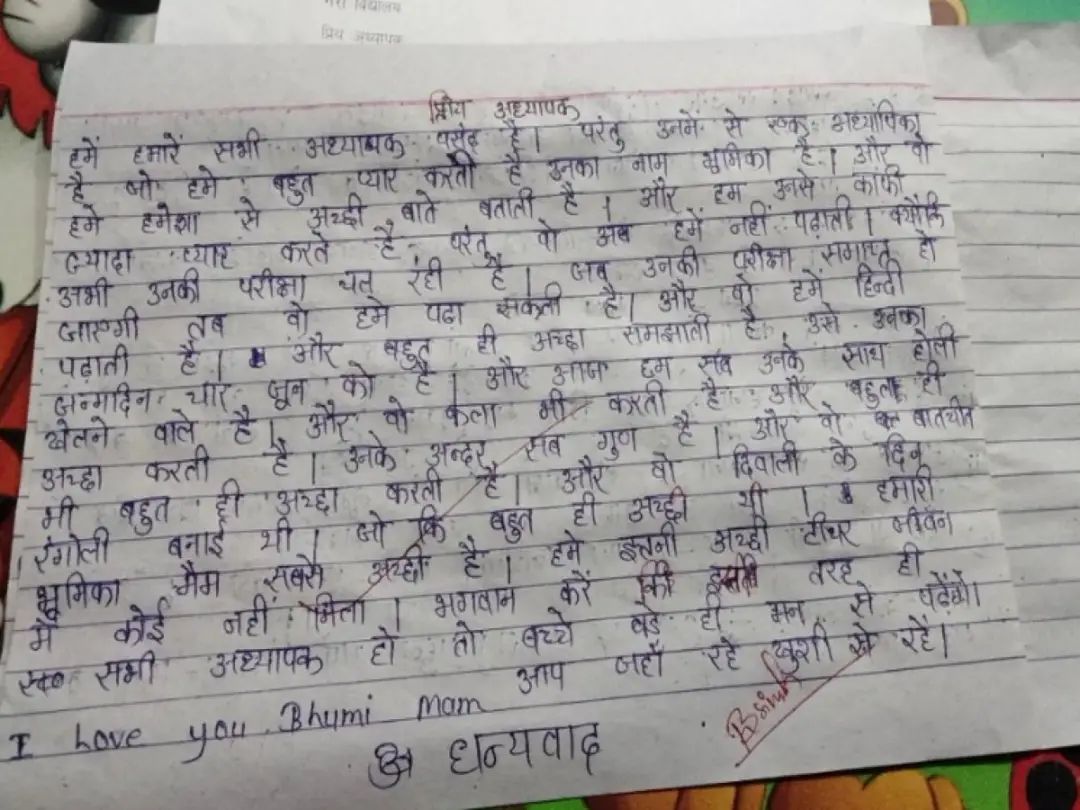 मेरा विद्यालय
प्रिय अध्यापक
प्रिय अध्यापक
हमें हमारें सभी अध्यापक पसंद है। परंतु उनमें से एक अध्यापिका
है जो हमे बहुत प्यार करती है उनका नाम भूमिका है। और वो
हमे हमेशा से अच्छी बाते बताती है। और हम उनसे काफी
ज्यादा प्यार करते है परंतु वो अब हमें नहीं पढ़ाती। क्योंकि
अभी उनकी परीक्षा चल रही है। जब उनकी परीक्षा समाप्त हो
जाएगी तब वो हमे पढ़ा सकती है। और वो हमें हिन्दी
पढ़ाती है। और बहुत ही अच्छा समझाती है। उसे उनका
जन्मदिन चार जून को है। और आज हम सब उनके साथ होली
खेलने वाले है। और वो कला भी करती है और बहुत ही
अच्छा करती है। उनके अन्दर सब गुण है। और वो बातचीत
भी बहुत ही अच्छा करती है। और वो दिवाली के दिन
रंगोली बनाई थी। जो कि बहुत ही अच्छी थी। हमारी
भूमिका मैम सबसे अच्छी है। हमे इतनी अच्छी टीचर जीवन
में कोई नही मिला। भगवान करें कि इसी तरह ही
सभी अध्यापक हो तो बच्चे बडे ही मन से पढ़ेंगे।
आप जहाँ रहे खुशी से रहें।
I Love you Bhumi Mam
धन्यवाद